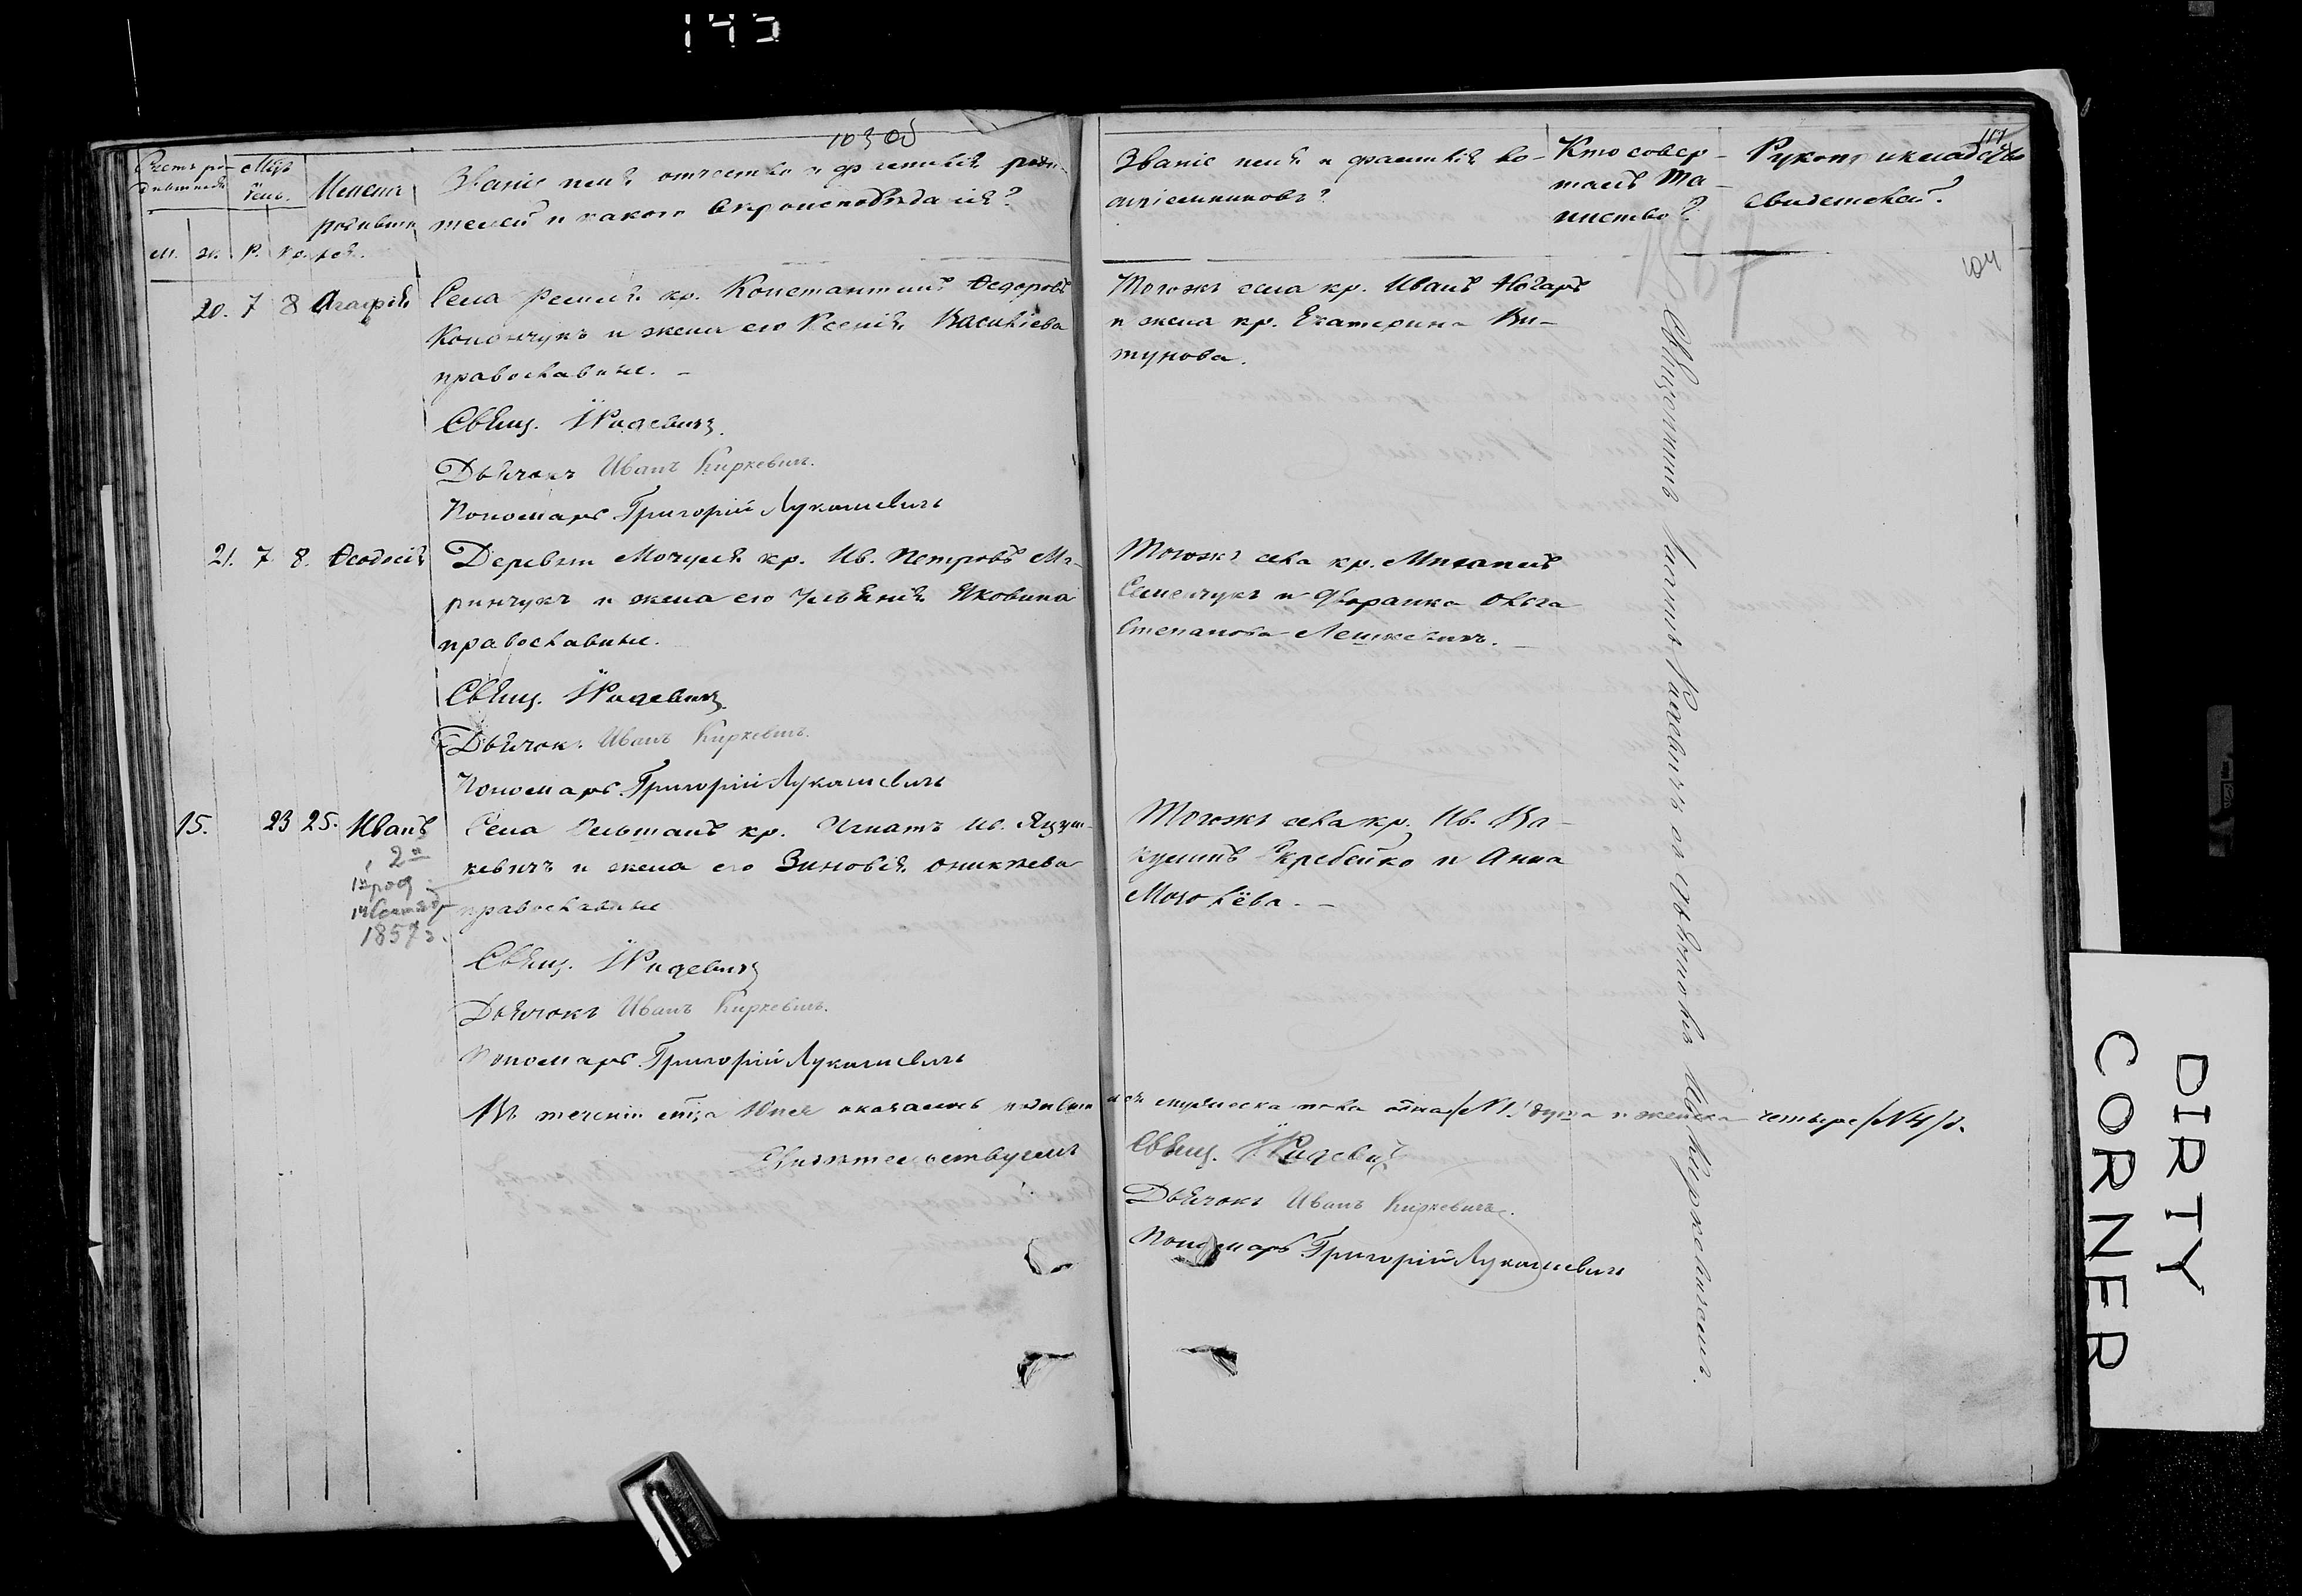 145
103 об
Счетъ ро-
дившихся
Мѣс
день.
Имена
родивш
м. ж. р. кр. хся.
Званіе имя отчество и фамилія роди-
телей и какого вѣроисповѣданія?
Званіе имя и фамилія во-
спріемниковъ?
Кто совер-
шалъ Та-
инство?
Рукоприкладство
свидетелей.
117
104
20. 7 8 Агафія
Села кр. Константинъ Федоровъ
Конончукъ и жена его Ксенія Василіева
православные. -
Свящ. Радевичъ
Дьячокъ Иванъ Киркевичъ.
Пономарь Григорій Лукашевичъ
Тогожъ села кр. Иванъ
и жена кр. Екатерина
21. 7. 8. Ѳеодосія
Деревни Мочуля кр. Ив. Петровъ Ма-
ринчукъ и жена его Ульянія Яковина
православные.
Свящ. Радевичъ
Дьячокъ Иванъ Киркевичъ.
Пономарь Григорій Лукашевичъ
Тогожъ села кр. Михаилъ
Семенчукъ и дворянка Ольга
Степанова Лешкевичъ. -
15. 23 25. Иванъ
2й
1й род
14 Сентяб
1857 г.
Села кр. Игнатъ Ив. Яцуш-
кевичъ и жена его Зиновія
православные
Свящ. Радевичъ
Дьячокъ Иванъ Киркевичъ.
Пономарь Григорій Лукашевичъ
Тогожъ села кр. Ив.
Скребейко и Анна
В теченіи мца Іюня оказалось мужеска пола одна /№ 1/ душа и женска четыре /№ 4/
Свидетельствуемъ
Свящ. Радевичъ
Дьячокъ Иванъ Киркевичъ.
Пономарь Григорій Лукашевичъ
Священникъ Радевичъ съ Киркевичемъ.
DIRTY
CORNER